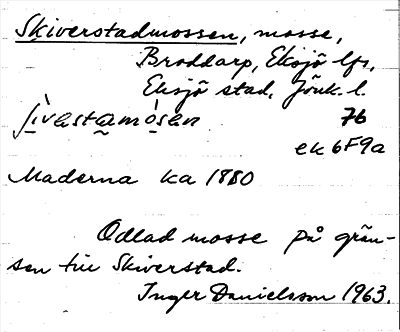 Skiverstadmossen, mosse,
Broddarp, Eksjö lfs,
Eksjö stad, Jönk. l.
76
ek 6F9a
Maderna ka 1880
Odlad mosse på grän-
sen till Skiverstad.
Inger Danielsson 1963.